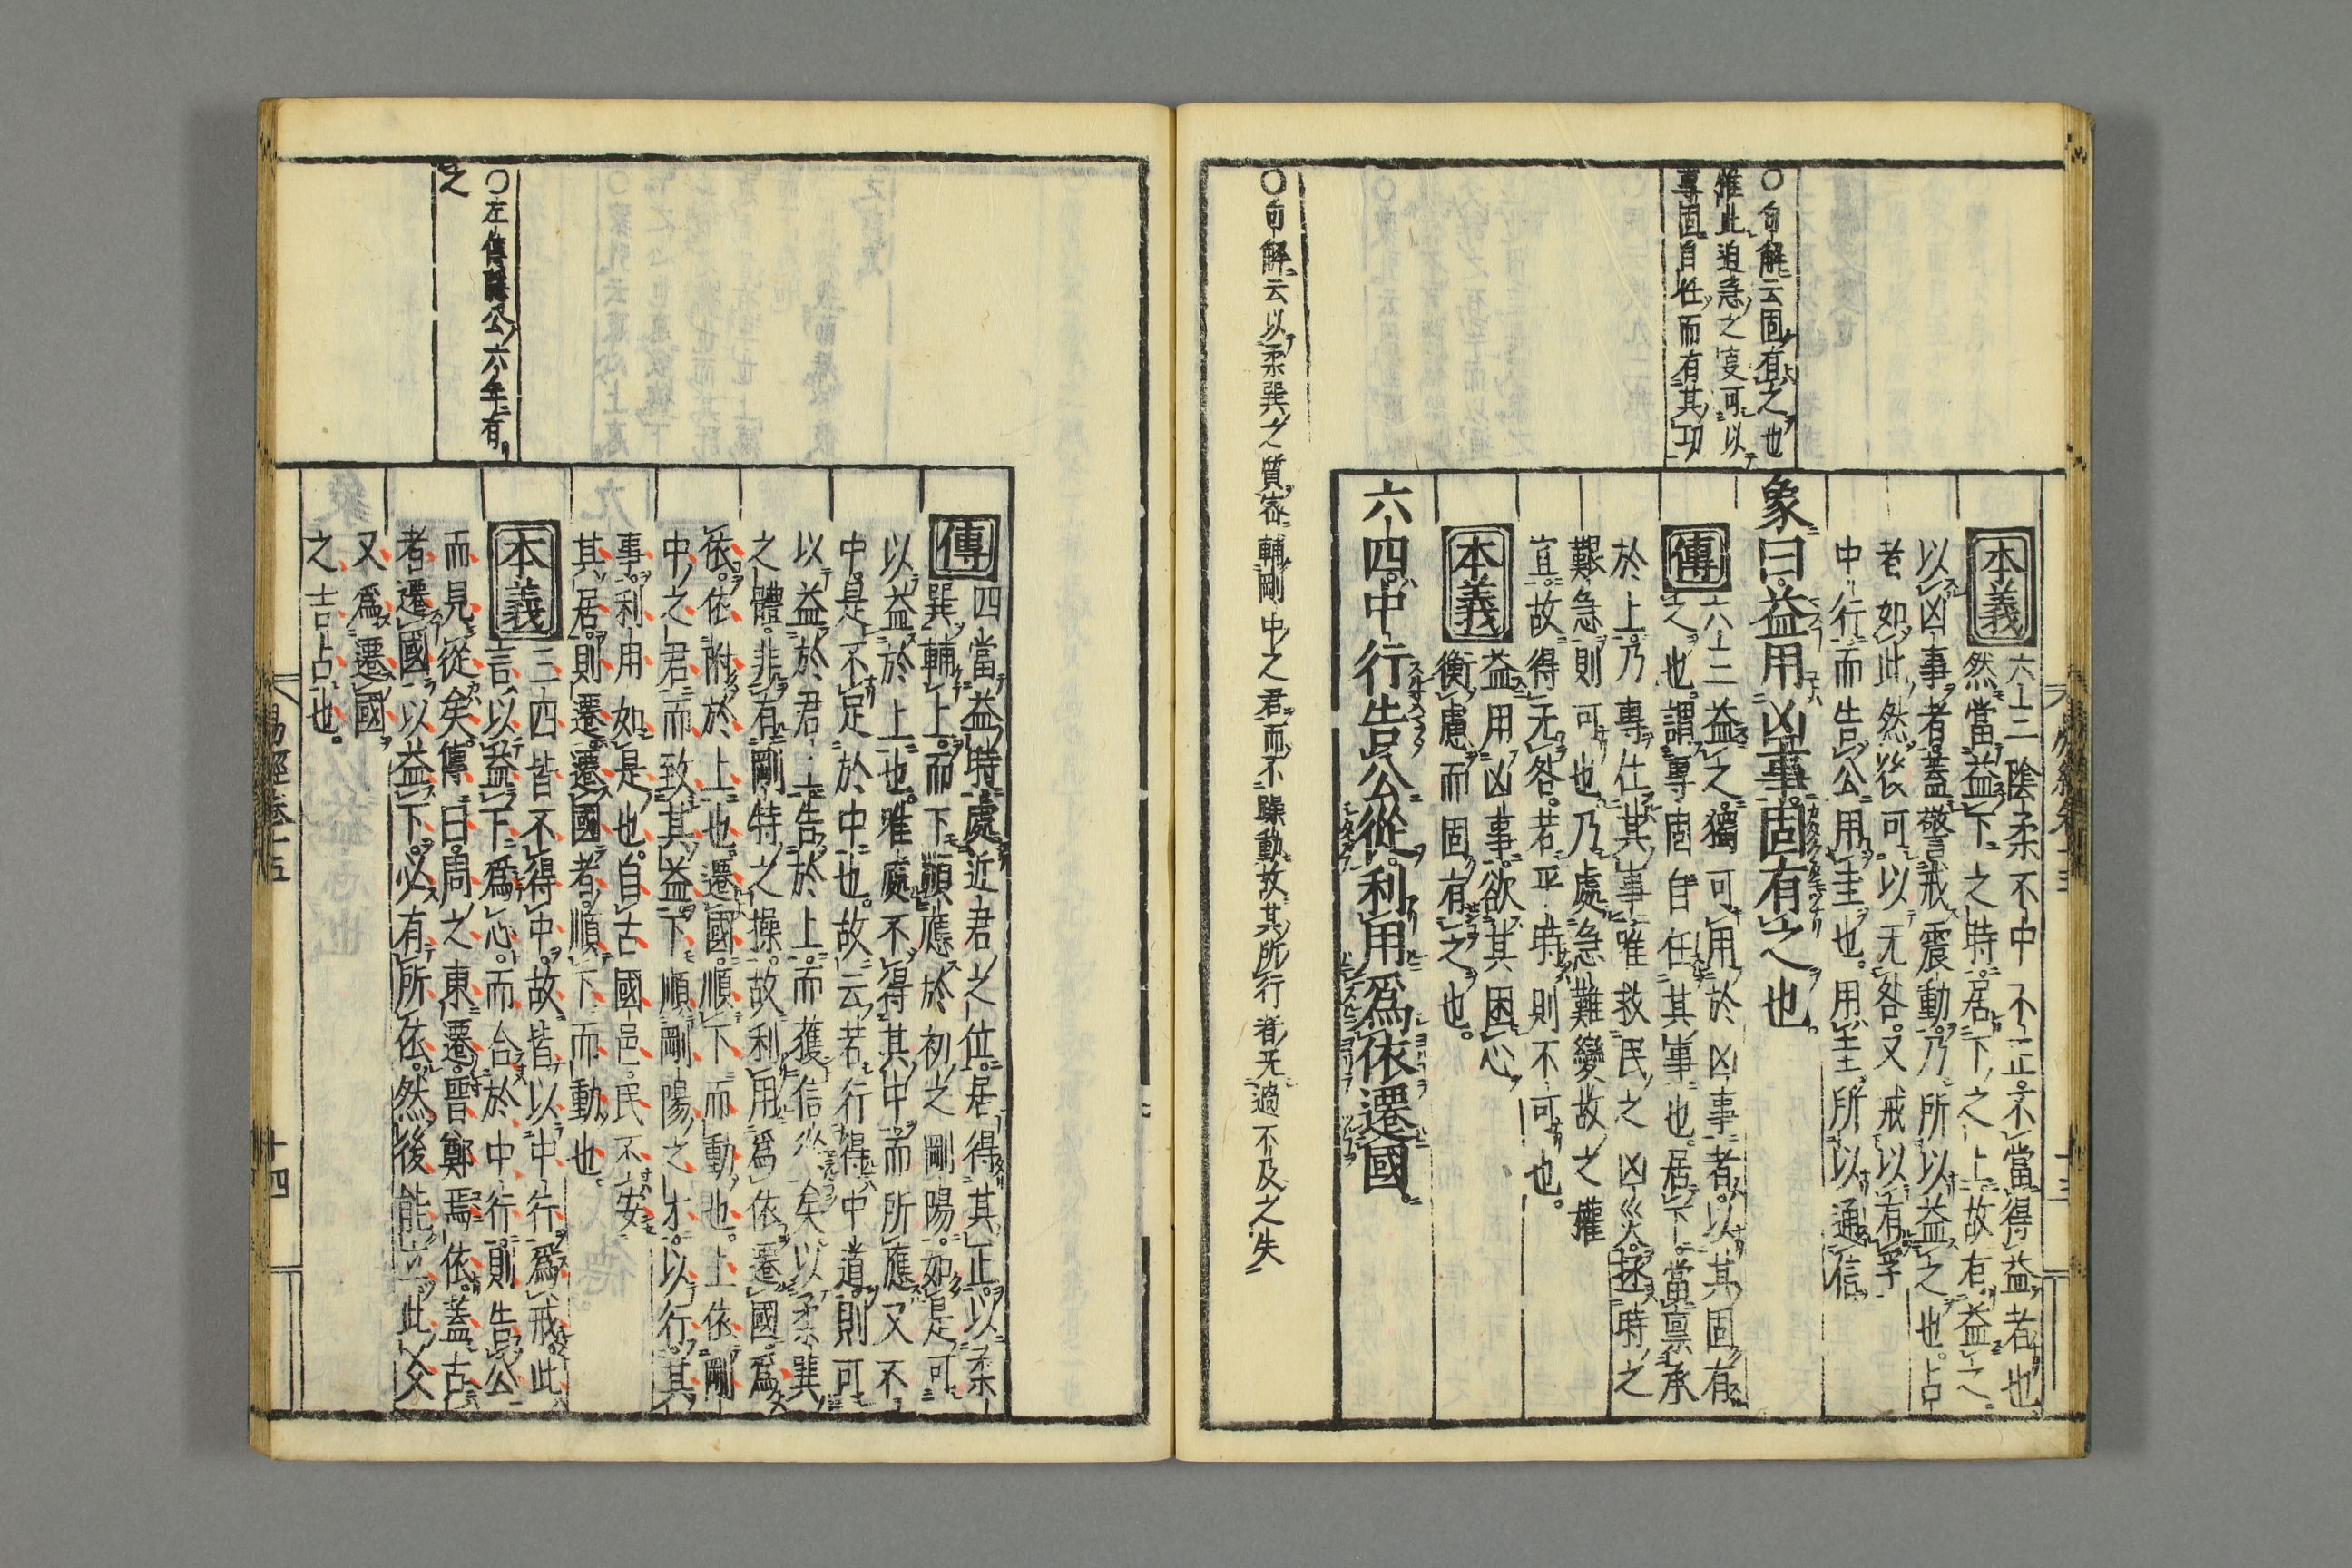 本義 六三陰柔不中不正不當得益者也
然當益下之時居下之上故有益之
以凶事者蓋警戒震動乃所以益之也占
者如此然後可以无咎又戒以有孚
中行而告公用圭也用圭所以通信
象曰益用凶事固有之也
傳 六三益之獨可用於凶事者以其固有
之也謂專固自任其事也居下當禀承
於上乃專任其事唯救民之凶災拯時之
艱急則可也乃處急難變故之權
宜故得无咎若平時則不可也
本義 益用凶事欲其困心
衡慮而固有之也
六四中行告公從利用爲依遷國
〇句解云固有之也
惟此迫急之変可以
專固自任而有其功
〇句解云以柔巽之質密輔剛中之君而不躁動故其所行者无過不及之失
傳 四當益時處近君之位居得其正以柔
巽輔上而下順應於初之剛陽如是可
以益於上也唯處不得其中而所應又不
中是不足於中也故云若行得中道則可
以益於君上告於上而獲信從矣以柔巽
之體非有剛特之操故利用爲依遷國爲
依依附於上也遷國順下而動也上依剛
中之君而致其益下順剛陽之才以行其
事利用如是也自古國邑民不安
其居則遷遷國者順下而動也
本義 三四皆不得中故皆以中行爲戒此
言以益下爲心而合於中行則告公
而見從矣傳曰周之東遷晉鄭焉依蓋古
者遷國以益下必有所依然後能立此爻
又爲遷國
之吉占也
〇左傳隱公六年有
之
易經卷十五
十四